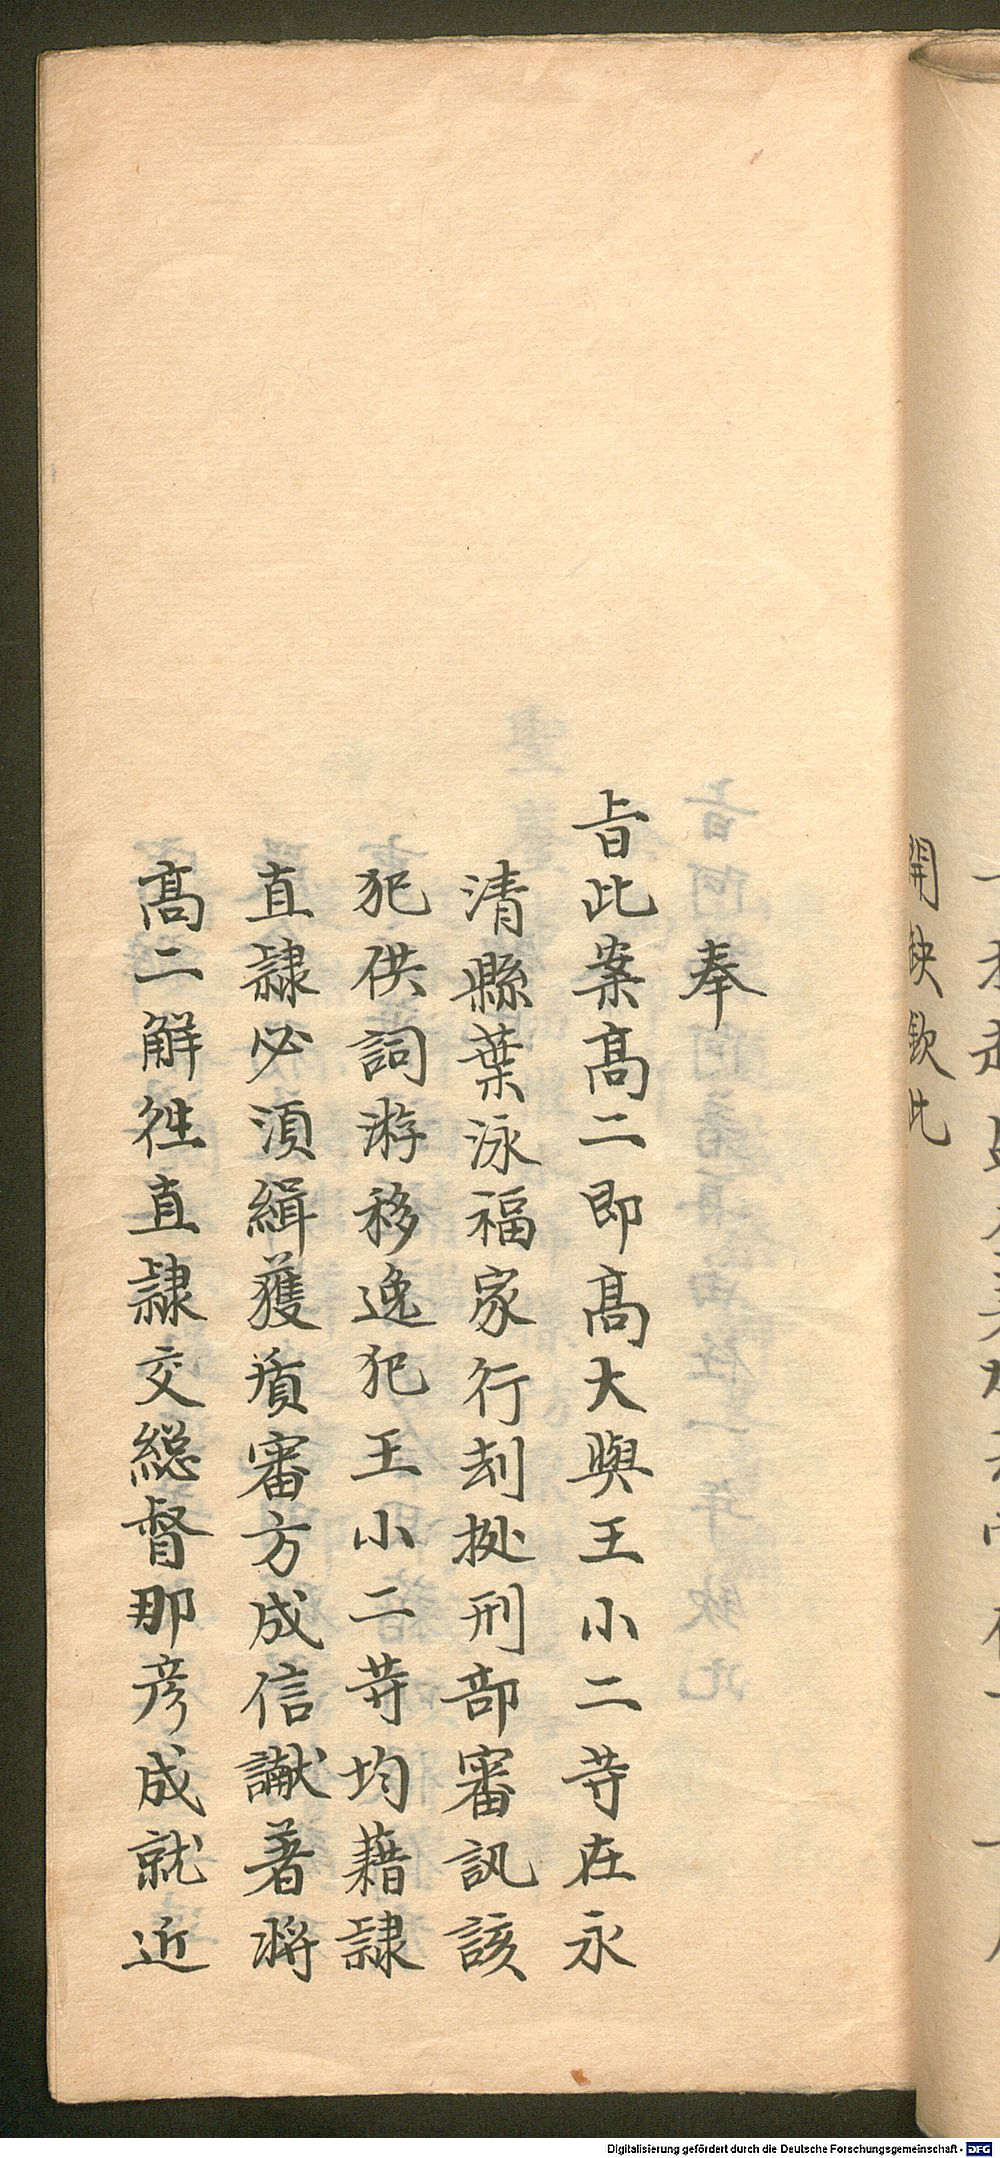 開缺欽此
奉
旨此案髙二即髙大與王小二䓁在永
清縣葉泳福家行刦拠刑部審訊該
犯供詞游移逸犯王小二䓁均藉隷
直隷必湏緝獲質審方成信讞著將
髙二解徃直隷交總督那彦成就近
Digitalisierung gefördert durch die Deutsche Forschungsgemeinschaft - DFG